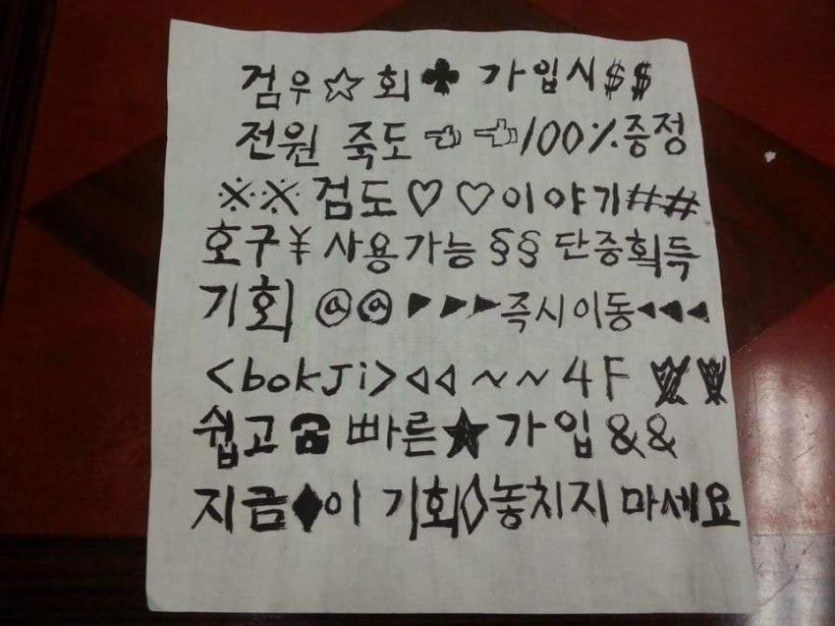 검우☆회♣ 가입시$$
전원 죽도☜☜100%증정
※※검도♡♡이야기##
호구¥사용가능§§단증획득
기회@@▶▶▶즉시이동◀◀◀
<bokJi>◁◁~~4F
쉽고☎빠른★가입&&
지금♦이 기회◇놓치지 마세요